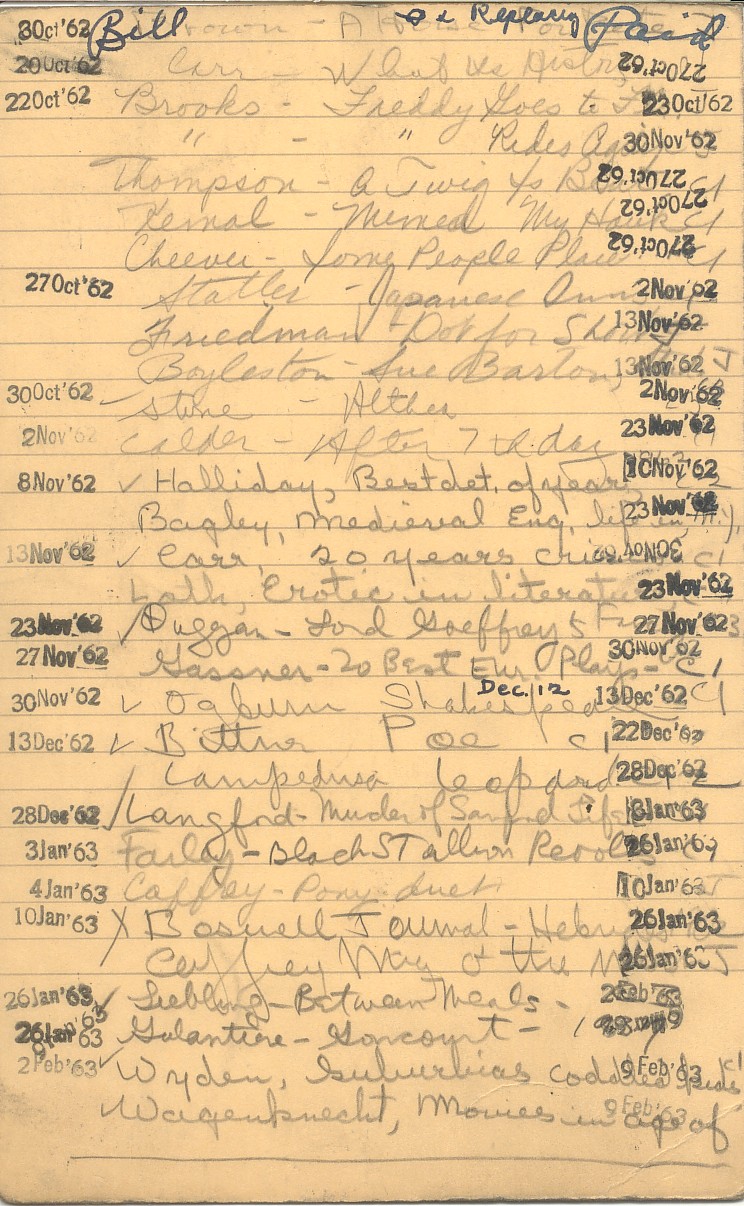 8Oct'62 Bill Brown - A Horse Replacing Paid
20Oct'62 Carr - What Is History 27Oct'62
22Oct'62 Brooks - Freddy Goes to 23Oct'62
" - " Rides Again J 30Nov'62
Thompson - A Twig Is C1 27Oct'62
Kemal - Memed My Hawk C1 27Oct'62
Cheever - Some People Place C1 27Oct'62
27Oct'62 Statler - Japanese Inn 2Nov'62
Friedman - Dot for Short J 13Nov'62
Boylston - Sue Barton, J 13Nov'62
30Oct'62 Stone - Althea 2Nov'62
2Nov'62 Calder - After 7th day 23Nov'62
8Nov'62 ✓ Halliday, Best det. of year 10Nov'62
Bagley, Medieval Eng. life in 23Nov'62
13Nov'62 ✓ Carr, 20 years cris C1 30Nov'62
Loth, Erotic in literature 23Nov'62
23Nov'62 ✓ Duggan - Lord Geoffrey's F 27Nov'62
27Nov'62 Gassner - 20 Best Eur. Plays - C1 30Nov'62
30Nov'62 ✓ Ogburn Shakespeare C1 Dec. 12 13Dec'62
13Dec'62 ✓ Bittner Poe C1 22Dec'62
Lampedusa Leopard 28Dec'62
28Dec'62 / Langford - Murder of Sanford 8Jan'63
3Jan'63 Farley - Black Stallion Revolts 26Jan'63
4Jan'63 Caffrey - Pony duet J 10Jan'63
10Jan'63 X Boswell Journal - Hebrides 26Jan'63
Caffrey Mag o' the M J 26Jan'63
26Jan'63 ✓ Liebling - Between Meals - 2Feb'63
26Jan'63 Galantiere - Goncourt -
2Feb'63 ✓ Wyden, Suburbias coddled kids C1 9Feb'63
Wagenknecht, Movies in age of 9Feb'63